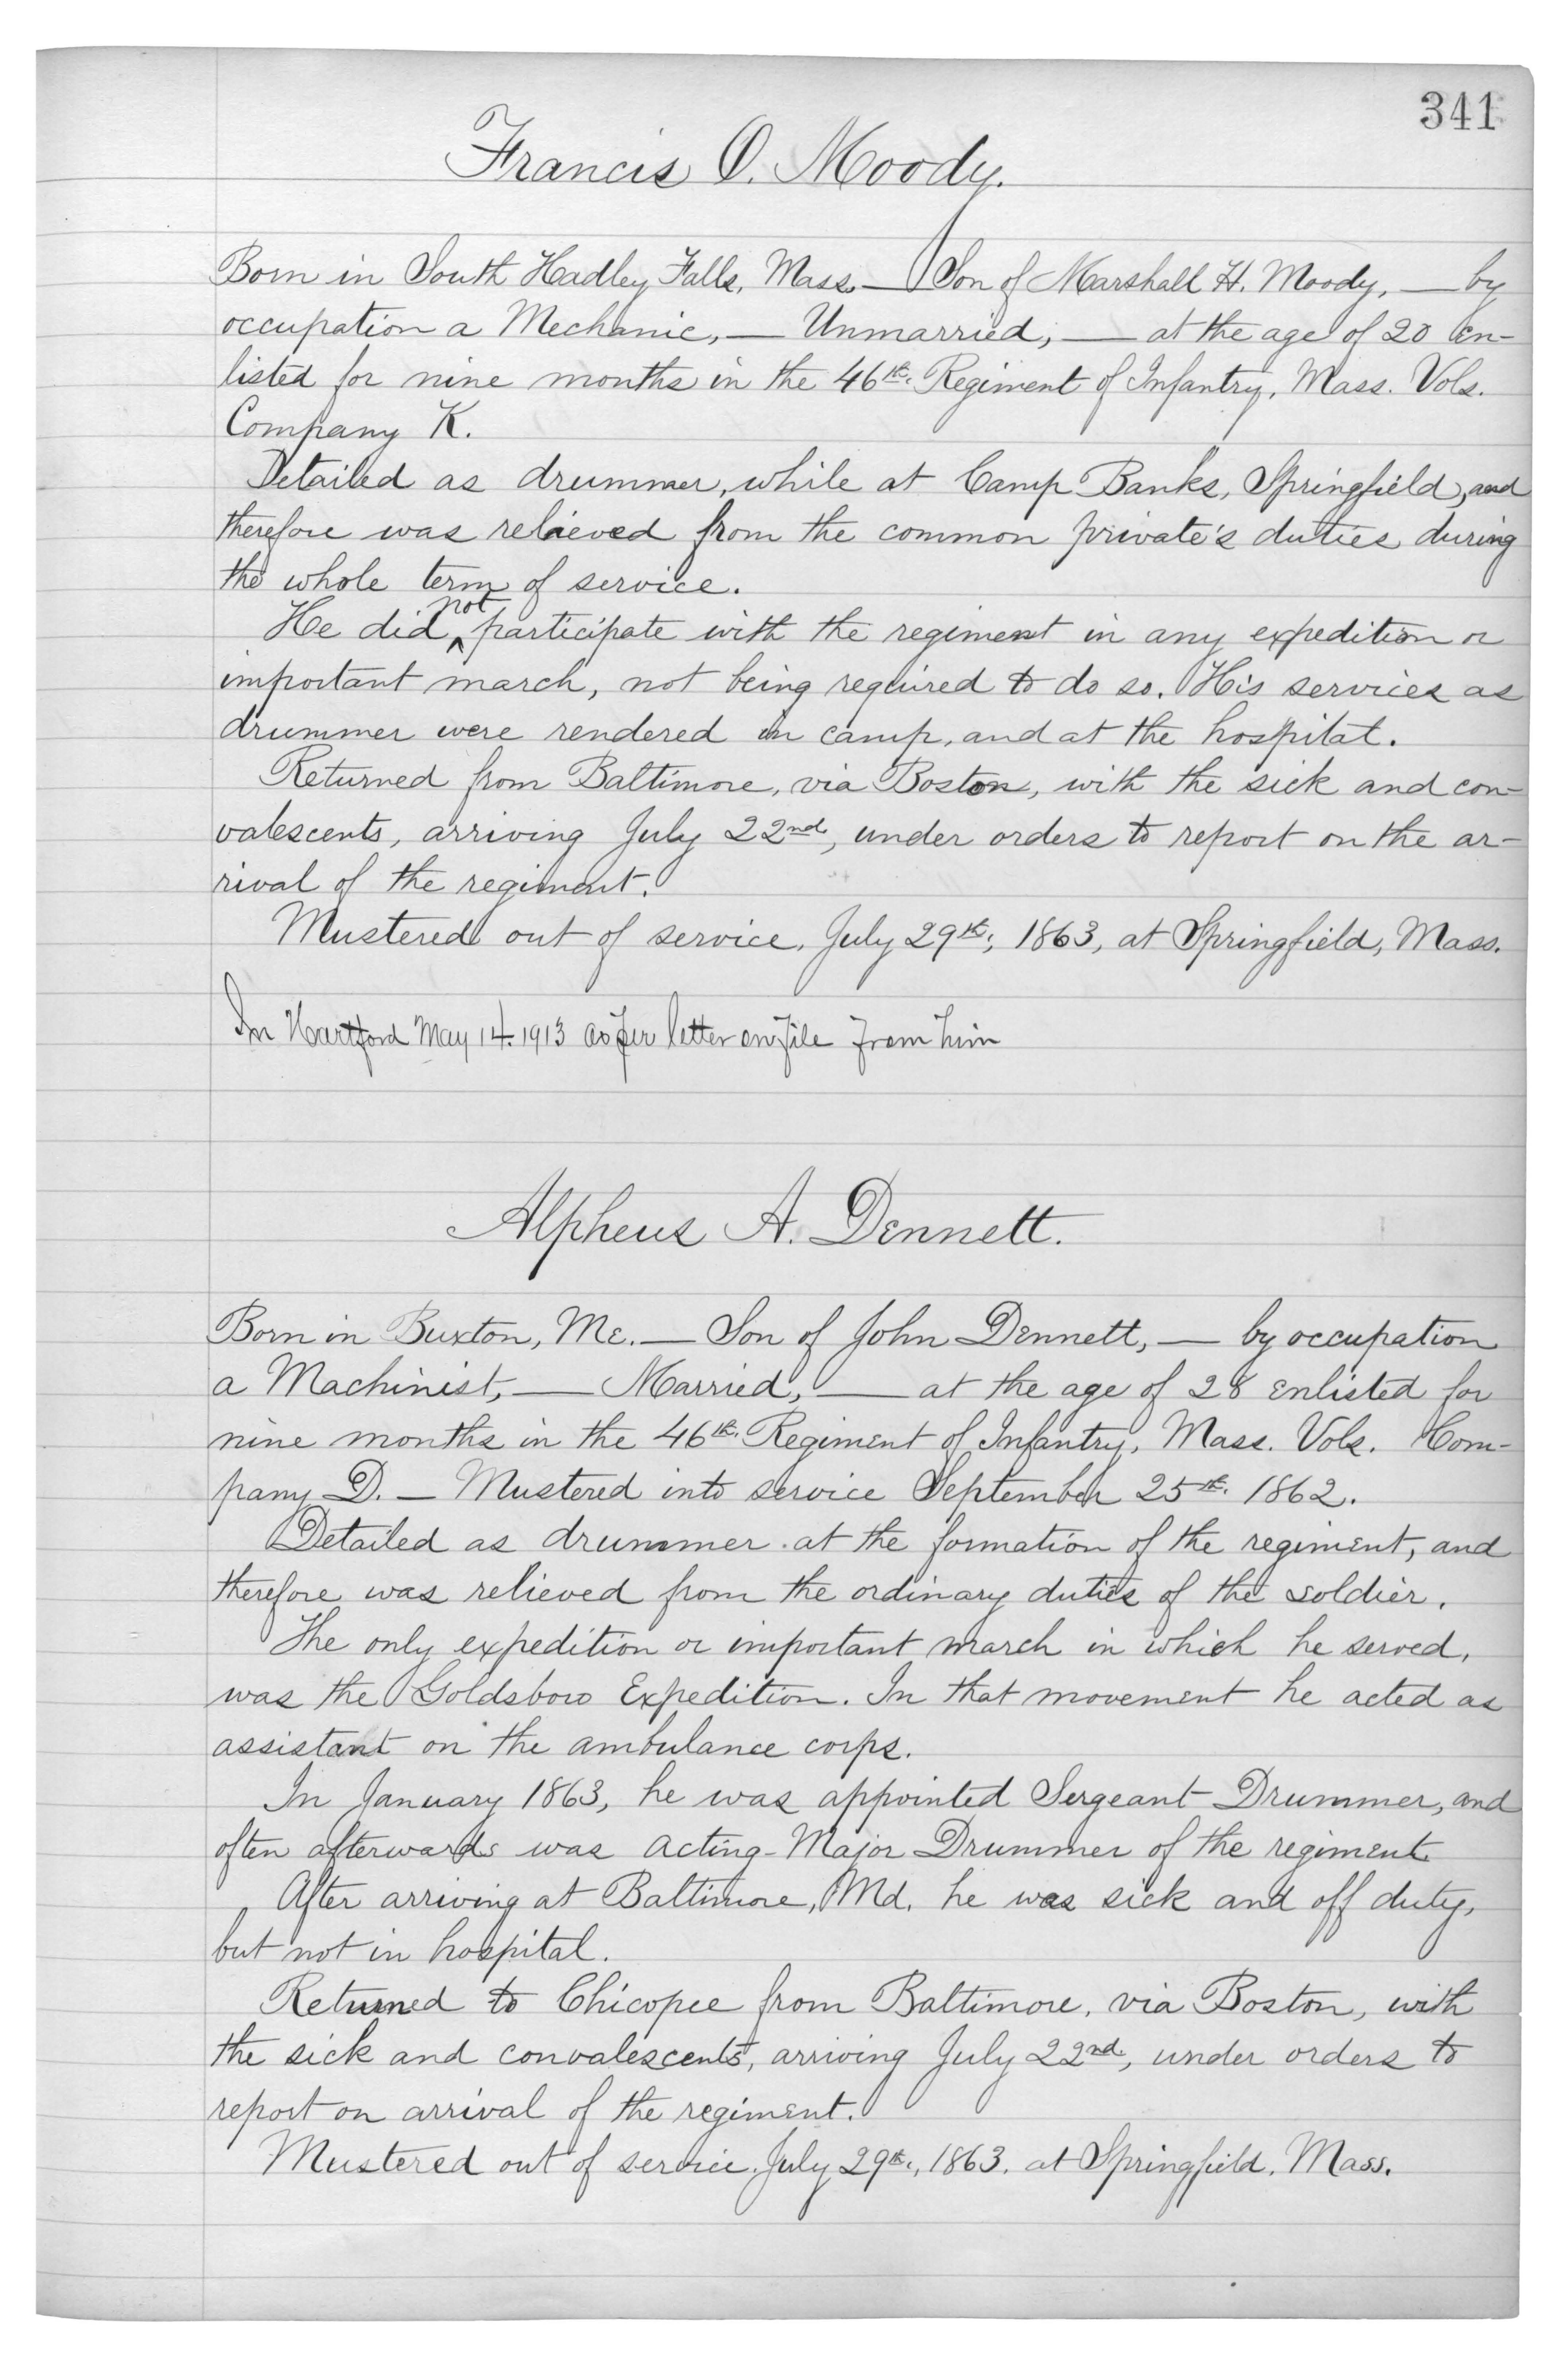 341
Francis O. Moody.
Born in South Hadley Falls, Mass. — Son of Marshall H. Moody, — by
occupation a Mechanic, — Unmarried, — at the age of 20 en-
listed for nine months in the 46th. Regiment of Infantry, Mass. Vols.
Company K.
Detailed as drummer, while at Camp Banks, Springfield, and
therefore was relieved from the common private's duties during
the whole term of service.
He did not participate with the regiment in any expedition or
important march, not being required to do so. His services as
drummer were rendered in camp, and at the hospital.
Returned from Baltimore, via Boston, with the sick and con-
valescents, arriving July 22nd, under orders to report on the ar-
rival of the regiment.
Mustered out of service, July 29th, 1863, at Springfield, Mass.
In Hartford May 14. 1913 as per letter on file from him
Alpheus A. Dennett.
Born in Buxton, Me. — Son of John Dennett, — by occupation
a Machinist, — Married, — at the age of 28 enlisted for
nine months in the 46th. Regiment of Infantry, Mass. Vols. Com-
pany D. — Mustered into service September 25th. 1862.
Detailed as drummer at the formation of the regiment, and
therefore was relieved from the ordinary duties of the soldier.
The only expedition or important march in which he served,
was the Goldsboro Expedition. In that movement he acted as
assistant on the ambulance corps.
In January 1863, he was appointed Sergeant Drummer, and
often afterwards was acting-Major Drummer of the regiment.
After arriving at Baltimore, Md. he was sick and off duty,
but not in hospital.
Returned to Chicopee from Baltimore, via Boston, with
the sick and convalescents, arriving July 22nd, under orders to
report on arrival of the regiment.
Mustered out of service, July 29th., 1863. at Springfield, Mass.